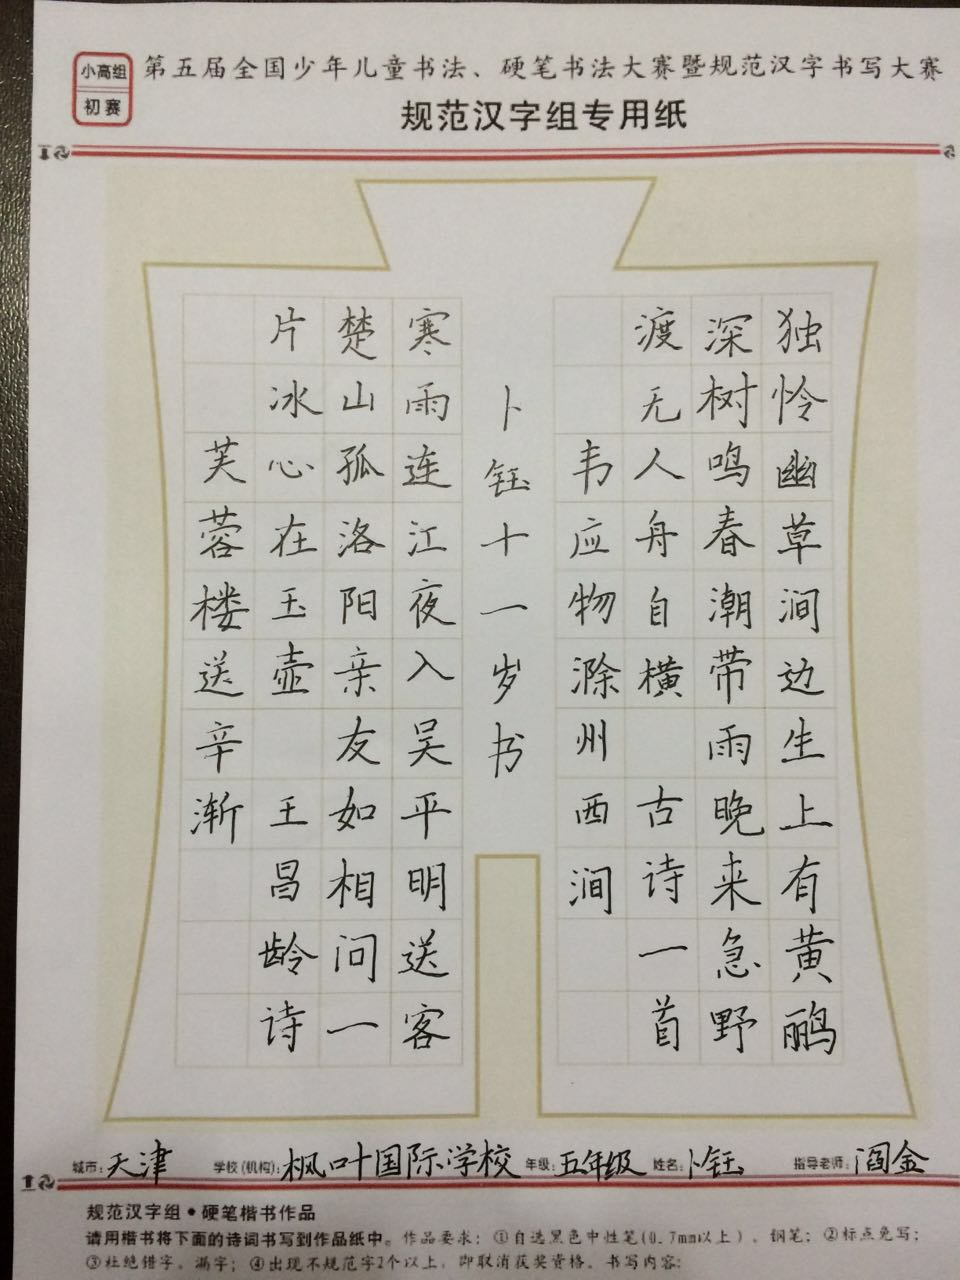 小高组
初赛
第五届全国少年儿童书法、硬笔书法大赛暨规范汉字书写大赛
规范汉字组专用纸
独怜幽草涧边生上有黄鹂
深树鸣春潮带雨晚来急野
渡无人舟自横 古诗一首
韦应物滁州西涧
卜钰十一岁书
寒雨连江夜入吴平明送客
楚山孤洛阳亲友如相问一
片冰心在玉壶 王昌龄诗
芙蓉楼送辛渐
城市:天津 学校(机构):枫叶国际学校 年级:五年级 姓名:卜钰 指导老师:阎金
规范汉字组•硬笔楷书作品
请用楷书将下面的诗词书写到作品纸中。作品要求:①自选黑色中性笔(0.7mm以上)、钢笔;②标点免写;
③杜绝错字、漏字;④出现不规范字2个以上,即取消获奖资格。书写内容: